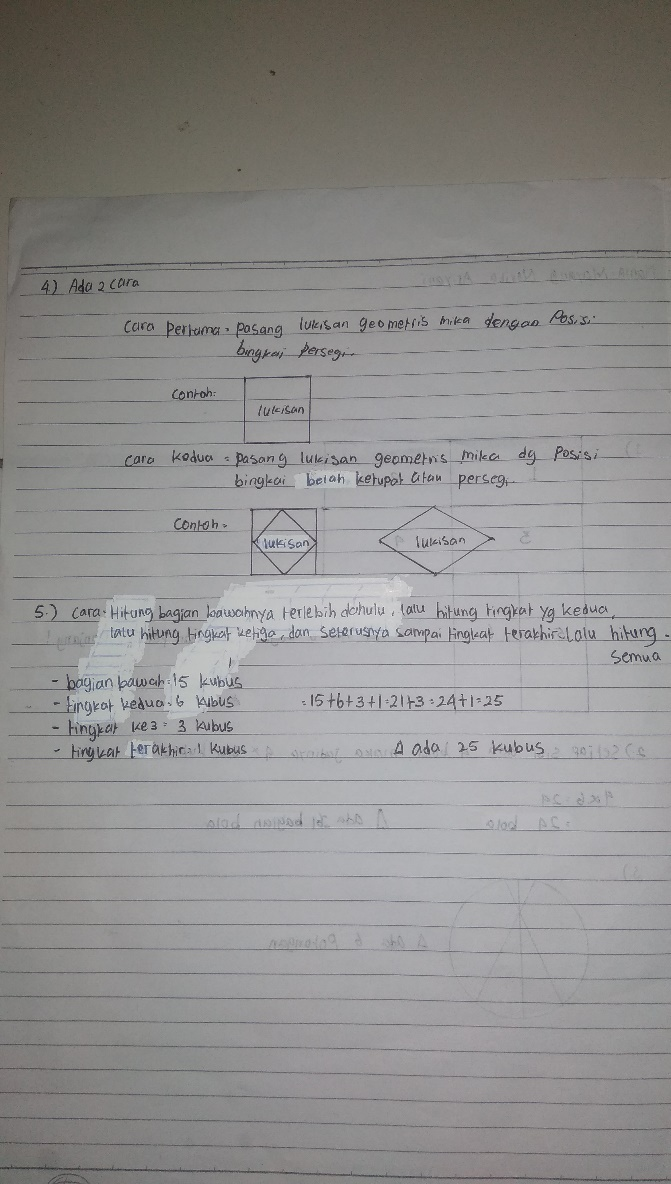 4.) Ada 2 cara
Cara pertama = pasang lukisan geometris mika dengan Posisi
bingkai persegi.
Contoh:
lukisan
Cara kedua = pasang lukisan geometris mika dg Posisi
bingkai belah ketupat atau persegi
Contoh =
lukisan
lukisan
5.) Cara = Hitung bagian bawahnya terlebih dahulu, lalu hitung tingkat yg kedua,
lalu hitung tingkat ketiga, dan seterusnya sampai tingkat terakhir. lalu hitung
semua
- bagian bawah = 15 kubus
- tingkat kedua = 6 kubus = 15+6+3+1 = 21+3 = 24+1 = 25
- tingkat ke 3 = 3 kubus
- tingkat terakhir = 1 kubus ∆ ada 25 kubus